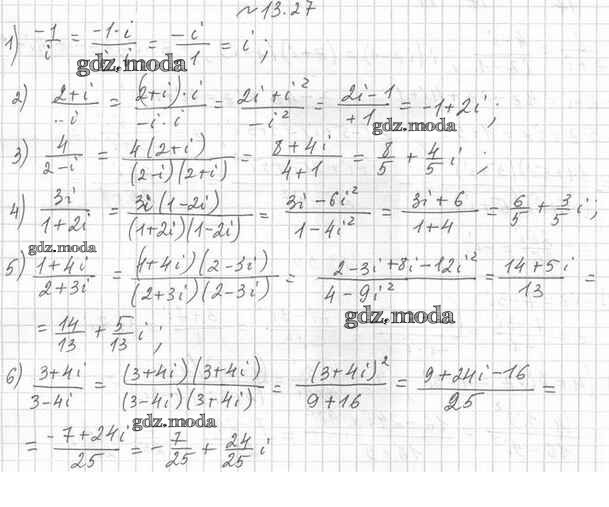 №13.27
1) -1/i = -1·i/i·i = -i/-1 = i;
gdz.moda
2) 2+i/-i = (2+i)·i/-i·i = 2i+i²/-i² = 2i-1/+1 = -1+2i;
gdz.moda
3) 4/2-i = 4(2+i)/(2-i)(2+i) = 8+4i/4+1 = 8/5 + 4/5 i;
4) 3i/1+2i = 3i(1-2i)/(1+2i)(1-2i) = 3i-6i²/1-4i² = 3i+6/1+4 = 6/5 + 3/5 i;
gdz.moda
5) 1+4i/2+3i = (1+4i)(2-3i)/(2+3i)(2-3i) = 2-3i+8i-12i²/4-9i² = 14+5i/13 =
gdz.moda
= 14/13 + 5/13 i;
6) 3+4i/3-4i = (3+4i)(3+4i)/(3-4i)(3+4i) = (3+4i)²/9+16 = 9+24i-16/25 =
gdz.moda
= -7+24i/25 = -7/25 + 24/25 i